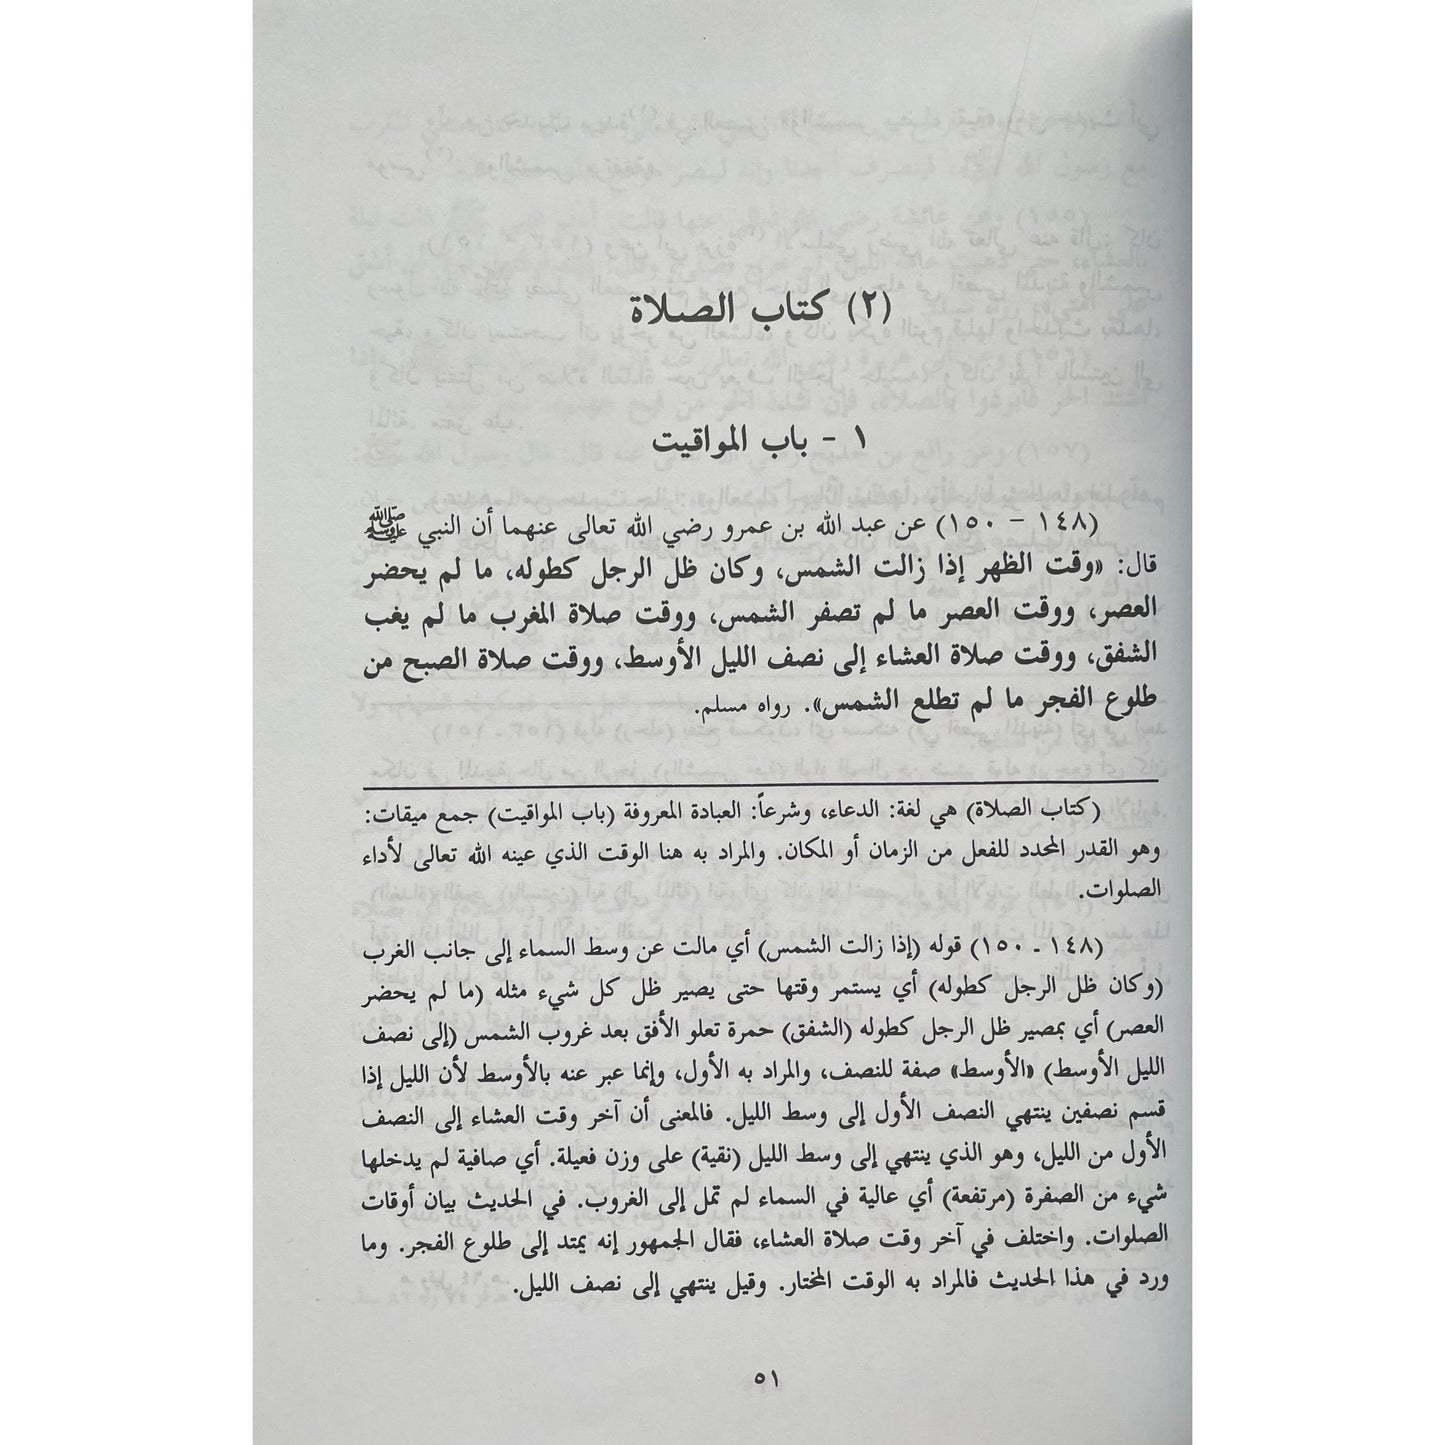 (٢) كتاب الصلاة
١ - باب المواقيت
(١٤٨ - ١٥٠) عن عبد الله بن عمرو رضي الله تعالى عنهما أن النبي ﷺ
قال: «وقت الظهر إذا زالت الشمس، وكان ظل الرجل كطوله، ما لم يحضر
العصر، ووقت العصر ما لم تصفر الشمس، ووقت صلاة المغرب ما لم يغب
الشفق، ووقت صلاة العشاء إلى نصف الليل الأوسط، ووقت صلاة الصبح من
طلوع الفجر ما لم تطلع الشمس». رواه مسلم.
(كتاب الصلاة) هي لغة: الدعاء، وشرعاً: العبادة المعروفة (باب المواقيت) جمع ميقات:
وهو القدر المحدد للفعل من الزمان أو المكان. والمراد به هنا الوقت الذي عينه الله تعالى لأداء
الصلوات.
(١٤٨ - ١٥٠) قوله (إذا زالت الشمس) أي مالت عن وسط السماء إلى جانب الغرب
(وكان ظل الرجل كطوله) أي يستمر وقتها حتى يصير ظل كل شيء مثله (ما لم يحضر
العصر) أي بمصير ظل الرجل كطوله (الشفق) حمرة تعلو الأفق بعد غروب الشمس (إلى نصف
الليل الأوسط) «الأوسط» صفة للنصف، والمراد به الأول، وإنما عبر عنه بالأوسط لأن الليل إذا
قسم نصفين ينتهي النصف الأول إلى وسط الليل. فالمعنى أن آخر وقت العشاء إلى النصف
الأول من الليل، وهو الذي ينتهي إلى وسط الليل (نقية) على وزن فعيلة. أي صافية لم يدخلها
شيء من الصفرة (مرتفعة) أي عالية في السماء لم تمل إلى الغروب. في الحديث بيان أوقات
الصلوات. واختلف في آخر وقت صلاة العشاء، فقال الجمهور إنه يمتد إلى طلوع الفجر. وما
ورد في هذا الحديث فالمراد به الوقت المختار. وقيل ينتهي إلى نصف الليل.
٥١